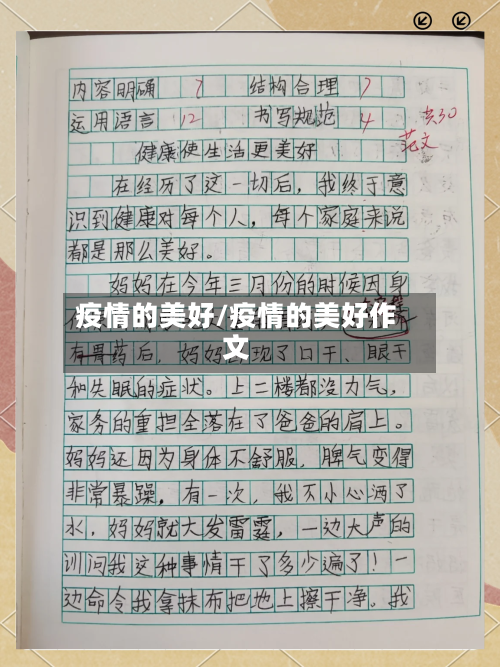 内容明确 7 结构合理 7
运用语言 12 书写规范 4 共30
范文
健康使生活更美好
在经历了这一切后，我终于意
识到健康对每个人，每个家庭来说
都是那么美好。
妈妈在今年三月份的时候因身
疫情的美好/疫情的美好作
文
药后，妈妈 现了口干、眼干
和失眠的症状。上二楼都没力气，
家务的重担全落在了爸爸的肩上。
妈妈还因为身体不舒服，脾气变得
非常暴躁，有一次，我不小心洒了
水，妈妈就大发雷霆，一边大声的
训问我这种事情干了多少遍了！一
边命令我拿抹布把地上擦干净。我